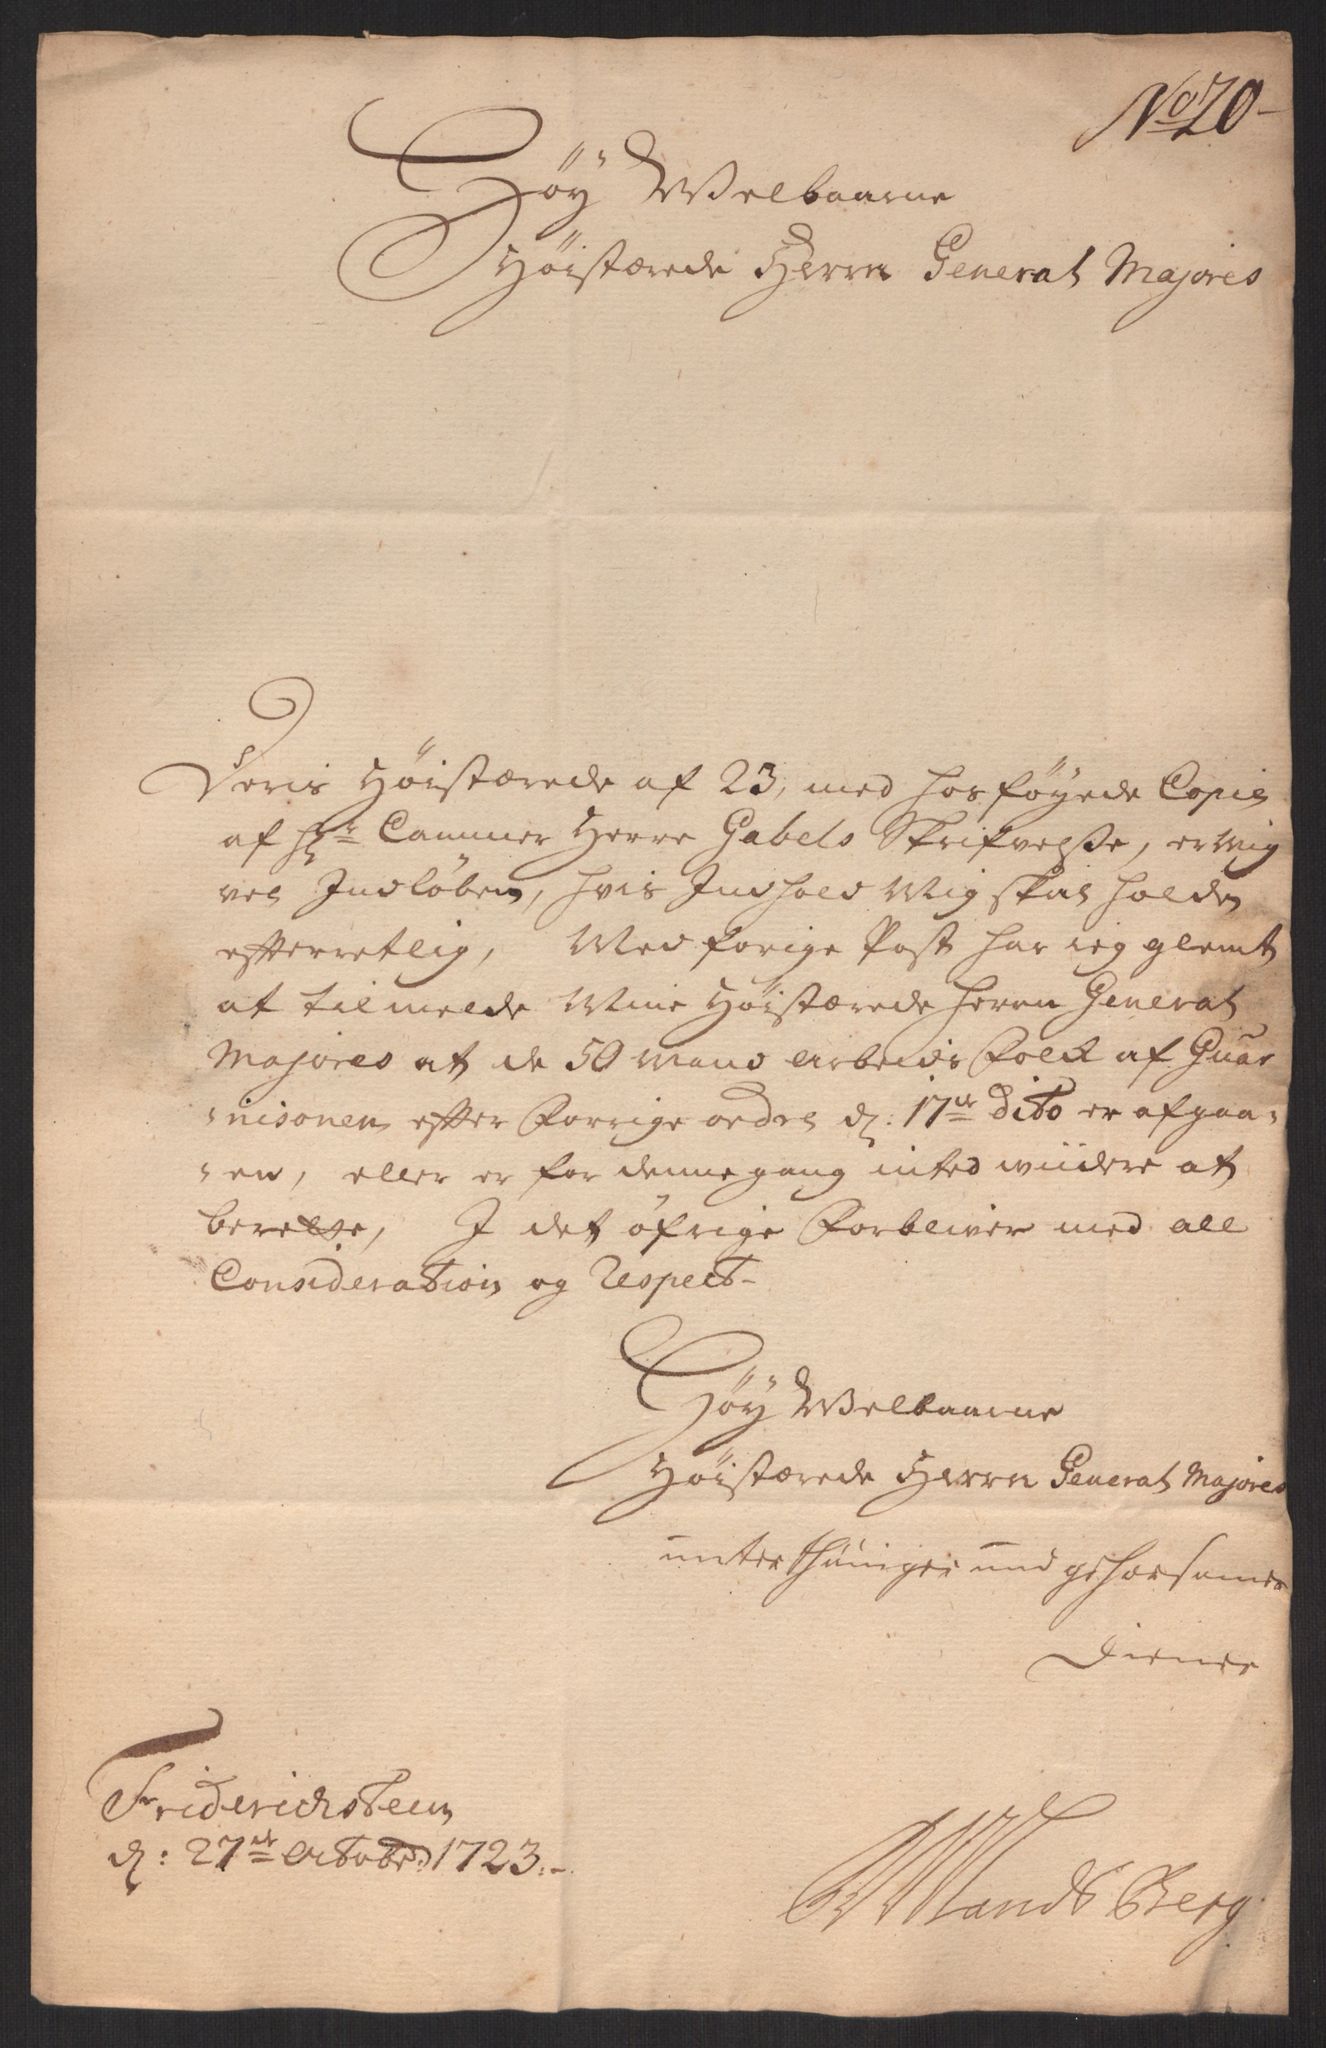 No 20
Høy Welbaarne
Høistærede Herrn General Majores
Deris Høistærede af 23, med hosføyede Copie
af Hr. Cammer Herre Gabels Skrifvelsse, er mig
vel Indløben, hvis Indhold Mig skal holden
efferretlig, Med forige Post har ieg glemt
at tilmelde Mine Høistærede Herrn General
Majores at de 50 Mand arbeids Folck af Guar
nisonen effter Forrige ordre d: 17de dito er afgaa-
en, eller er for denne gang inted wiidere at
I det øfrige Forbliver med all
Consideration og Respect
Høy Welbaarne
Høistærede Herrn General Majores
unterthäniger und gehorsamer
Diener
Friderichsteen
d: 27de octobr: 1723.
Landsberg